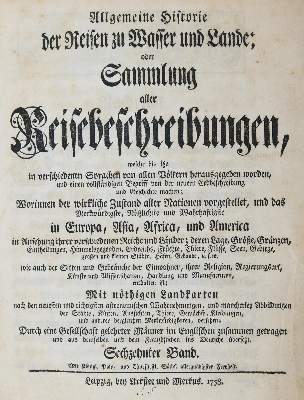 Allgemeine Historie
der Reisen zu Wasser und Lande;
oder
Sammlung
aller
Reisebeschreibungen,
welche bis itzo
in verschiedenen Sprachen von allen Völkern herausgegeben worden,
und einen vollständigen Begriff von der neuern Erdbeschreibung
und Geschichte machen;
Worinnen der wirkliche Zustand aller Nationen vorgestellet, und das
Merkwürdigste, Nützlichste und Wahrhaftigste
in Europa, Asia, Africa, und America
in Ansehung ihrer verschiedenen Reiche und Länder; deren Lage, Größe, Gränzen,
Eintheilungen, Himmelsgegenden, Erdreichs, Früchte, Thiere, Flüsse, Seen, Gebirge,
großen und kleinen Städte, Häfen, Gebäude, u. s. w.
wie auch der Sitten und Gebräuche der Einwohner, ihrer Religion, Regierungsart,
Künste und Wissenschaften, Handlung und Manufacturen,
enthalten ist;
Mit nöthigen Landkarten
nach den neuesten und richtigsten astronomischen Wahrnehmungen, und mancherley Abbildungen
der Städte, Küsten, Aussichten, Thiere, Gewächse, Kleidungen,
und anderer dergleichen Merkwürdigkeiten, versehen;
Durch eine Gesellschaft gelehrter Männer im Englischen zusammen getragen
und aus demselben und dem Französischen ins Deutsche übersetzt.
Sechzehnter Band.
Mit Königl. Poln. und Churfl. Sächs. allergnädigster Freyheit.
Leipzig, bey Arkstee und Merkus. 1758.